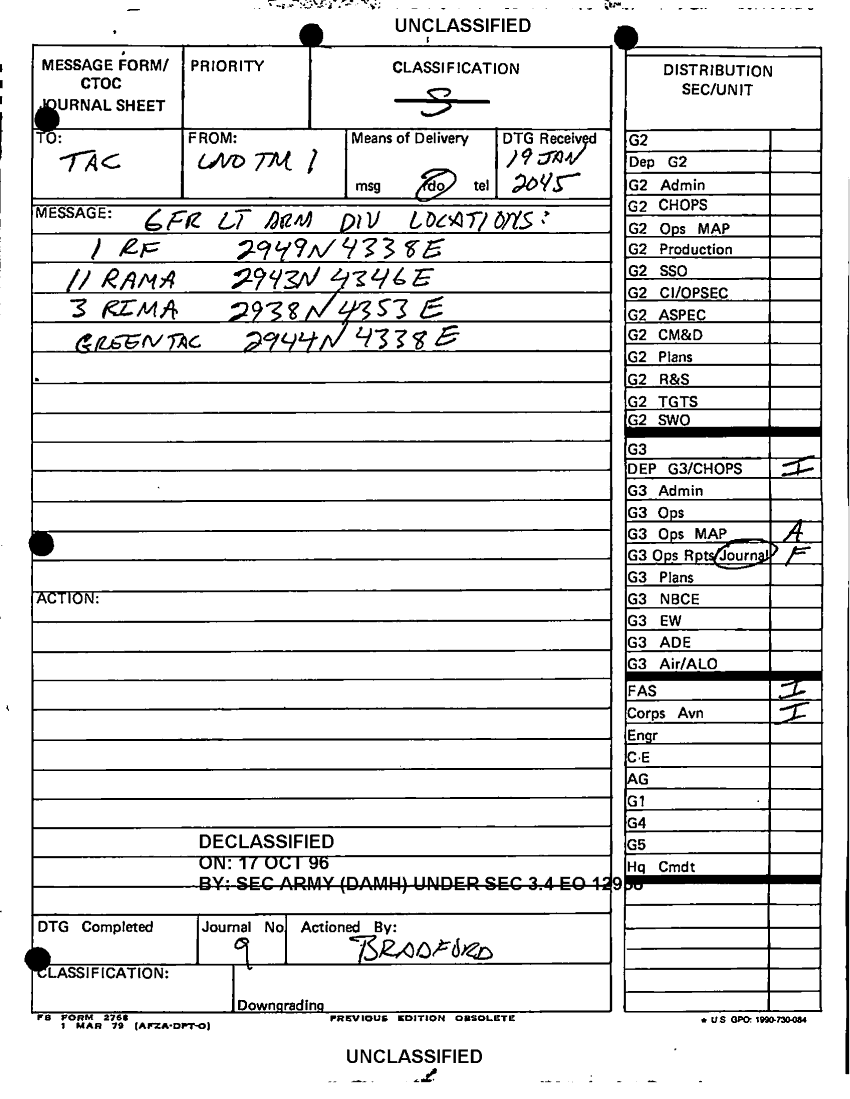 UNCLASSIFIED
MESSAGE FORM/
CTOC
JOURNAL SHEET
PRIORITY
CLASSIFICATION
S
TO:
TAC
FROM:
LNO TM 1
Means of Delivery
msg rdo tel
DTG Received
19 JAN
2045
MESSAGE: 6FR LT ARM DIV LOCATIONS:
1 RF 2949N 4338E
11 RAMA 2943N 4346E
3 RIMA 2938N 4353E
GREEN TAC 2944N 4338E
ACTION:
DECLASSIFIED
ON: 17 OCT 96
BY: SEC ARMY (DAMH) UNDER SEC 3.4 EO 12958
DTG Completed
Journal No
9
Actioned By:
BRADFORD
CLASSIFICATION:
Downgrading
FB FORM 2768
1 MAR 79 (AFZA-DPT-O)
PREVIOUS EDITION OBSOLETE
DISTRIBUTION
SEC/UNIT
G2
Dep G2
G2 Admin
G2 CHOPS
G2 Ops MAP
G2 Production
G2 SSO
G2 CI/OPSEC
G2 ASPEC
G2 CM&D
G2 Plans
G2 R&S
G2 TGTS
G2 SWO
G3
DEP G3/CHOPS I
G3 Admin
G3 Ops
G3 Ops MAP A
G3 Ops Rpts Journal F
G3 Plans
G3 NBCE
G3 EW
G3 ADE
G3 Air/ALO
FAS I
Corps Avn I
Engr
C-E
AG
G1
G4
G5
Hq Cmdt
★ U S GPO: 1990-730-084
UNCLASSIFIED